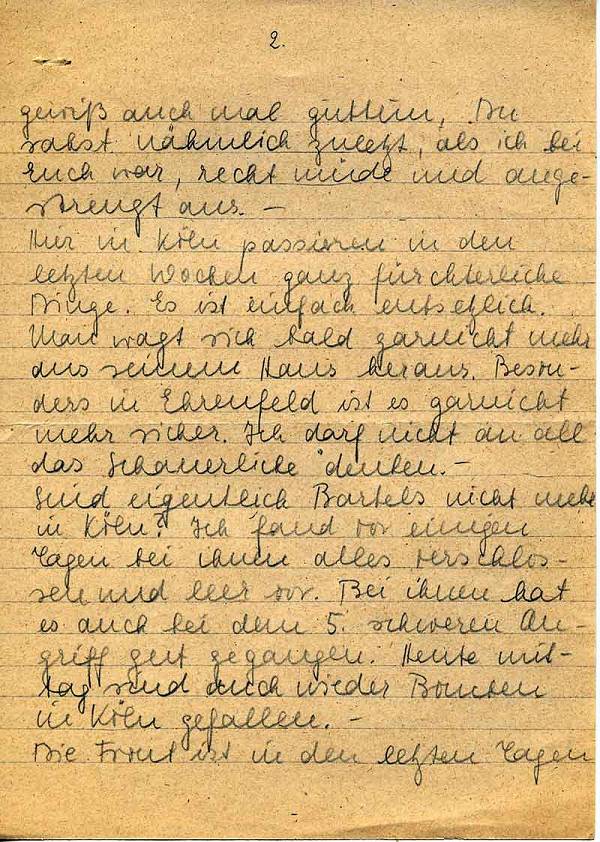 2.
gewiß auch mal guttun, Du
sahst nähmlich zuletzt, als ich bei
Euch war, recht müde und ange-
strengt aus. –
Hier in Köln passieren in den
letzten Wochen ganz fürchterliche
Dinge. Es ist einfach entsetzlich.
Man wagt sich bald garnicht mehr
aus seinem Haus heraus. Beson-
ders in Ehrenfeld ist es garnicht
mehr sicher. Ich darf nicht an all
das Schauerliche denken. –
Sind eigentlich Bartels nicht mehr
in Köln? Ich fand vor einigen
Tagen bei ihnen alles verschlos-
sen und leer vor. Bei ihnen hat
es auch bei dem 5. schweren An-
griff gut gegangen. Heute mit-
tag sind auch wieder Bomben
in Köln gefallen. –
Die Front ist in den letzten Tagen